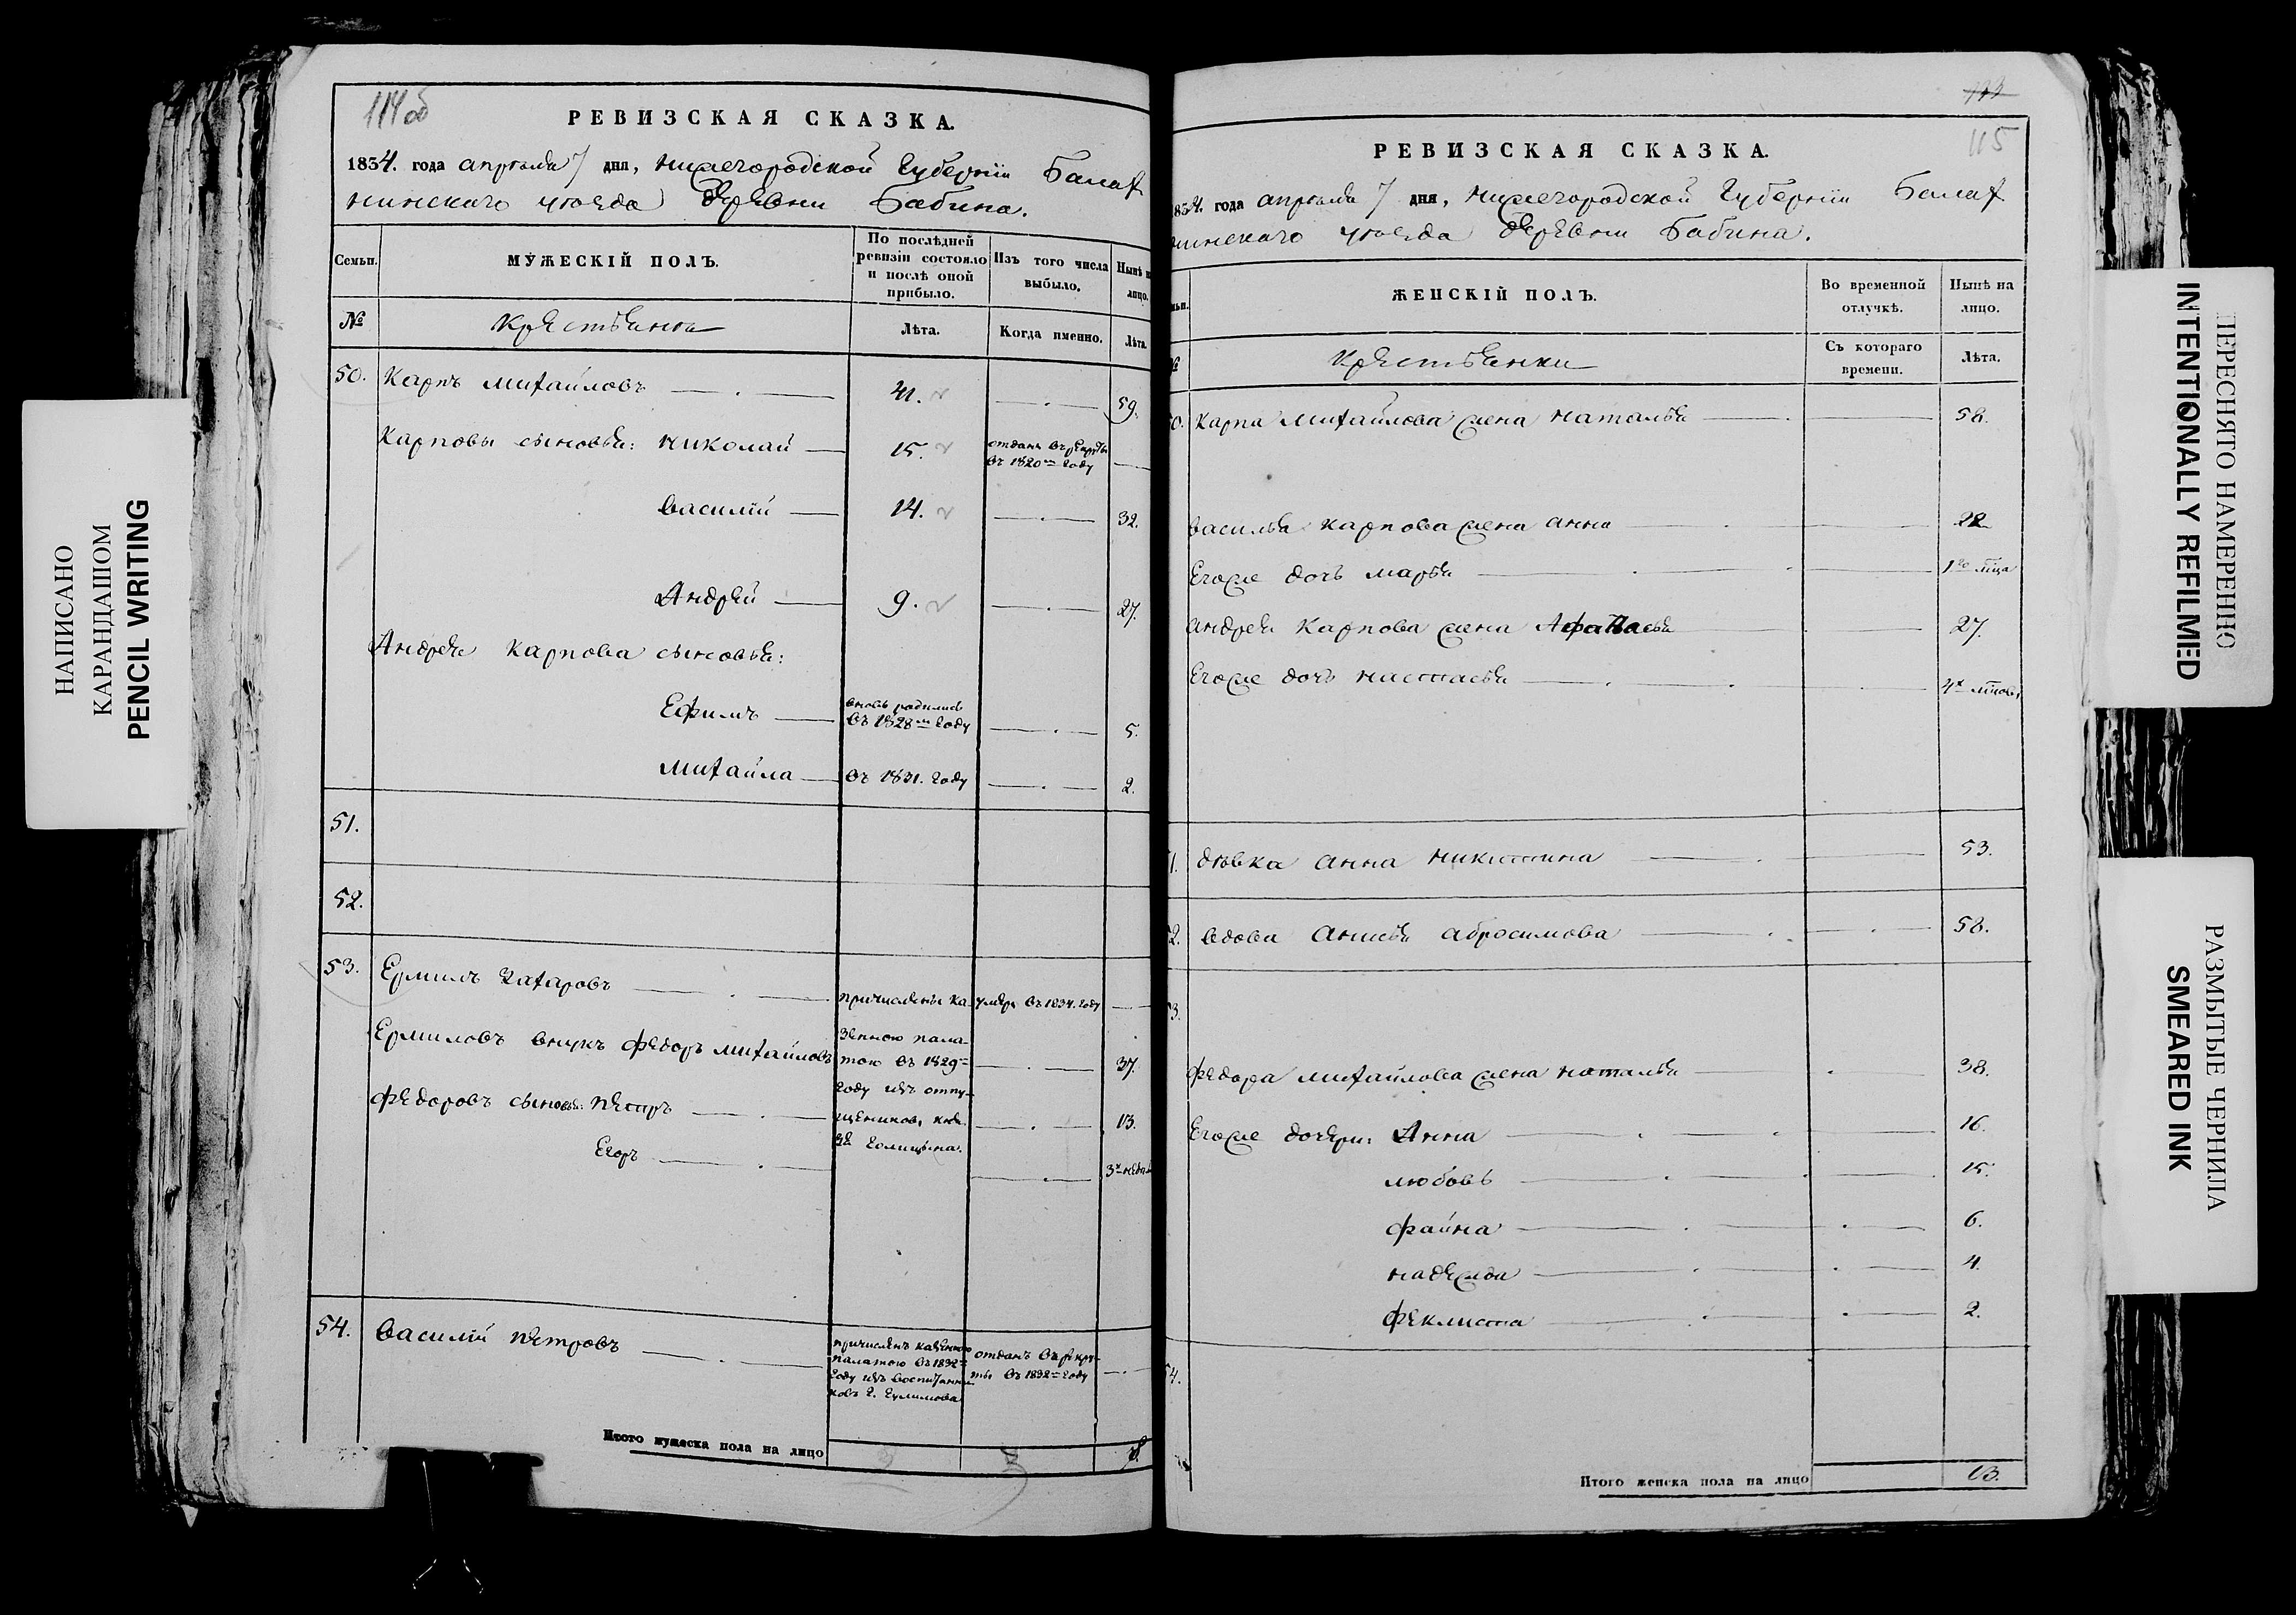 НАПИСАНО
КАРАНДАШОМ
PENCIL WRITING
114 об
РЕВИЗСКАЯ СКАЗКА.
1834. года апреля 7 дня, Нижегородской Губернiи Балах
нинскаго уезда деревни Бабина.
Семьи.
МУЖЕСКIЙ ПОЛЪ.
По послѣдней ревизiи состояло и послѣ оной прибыло.
Изъ того числа выбыло.
Нынѣ на лицо.
№
Крестьяне
Лѣта.
Когда именно.
Лѣта.
50. Карпъ Михайловъ 41. 59.
Карповы сыновья: Николай 15. отданъ въ рекруты въ 1820м году
Василiй 14. 32.
Андрей 9. 27.
Андрея Карпова сыновья:
Ефимъ вновь родились въ 1828м году 5.
Михайла въ 1831. году 2.
51.
52.
53. Ермилъ Захаровъ умеръ въ 1834. году
Ермиловъ внукъ Федоръ Михайловъ 37.
Федоровъ сыновья: Петръ 13.
Егоръ 3х недель
причислены ка-
зенною пала-
тою въ 1829м
году изъ отпу-
щенниковъ кня-
зя Голицына.
54. Василiй Петровъ
причисленъ казенною
палатою въ 1832м
году изъ воспитанни-
ковъ Г.
отданъ въ рекру-
ты въ 1832м году
Итого мужеска пола на лицо 8.
115
РЕВИЗСКАЯ СКАЗКА.
1834. года апреля 7 дня, Нижегородской Губернiи Балах
нинскаго уезда деревни Бабина.
ЖЕНСКIЙ ПОЛЪ.
Во временной отлучкѣ.
Нынѣ на лицо.
№
Крестьянки
Съ котораго времени.
Лѣта.
50. Карпа Михайлова жена Наталья 58.
Василья Карпова жена Анна 22
Егоже дочь Марья 1го мца
Андрея Карпова жена Афанасья 27.
Егоже дочь Настасья 4х мцовъ
51. девка Анна Никитина 53.
52. вдова Анисья Абросимова 58.
53.
Федора Михайлова жена Наталья 38.
Егоже дочери: Анна 16.
Любовь 15.
Файна 6.
Надежда 4.
Феклиста 2.
54.
Итого женска пола на лицо 13.
ПЕРЕСНЯТО НАМЕРЕННО
INTENTIONALLY REFILMED
РАЗМЫТЫЕ ЧЕРНИЛА
SMEARED INK